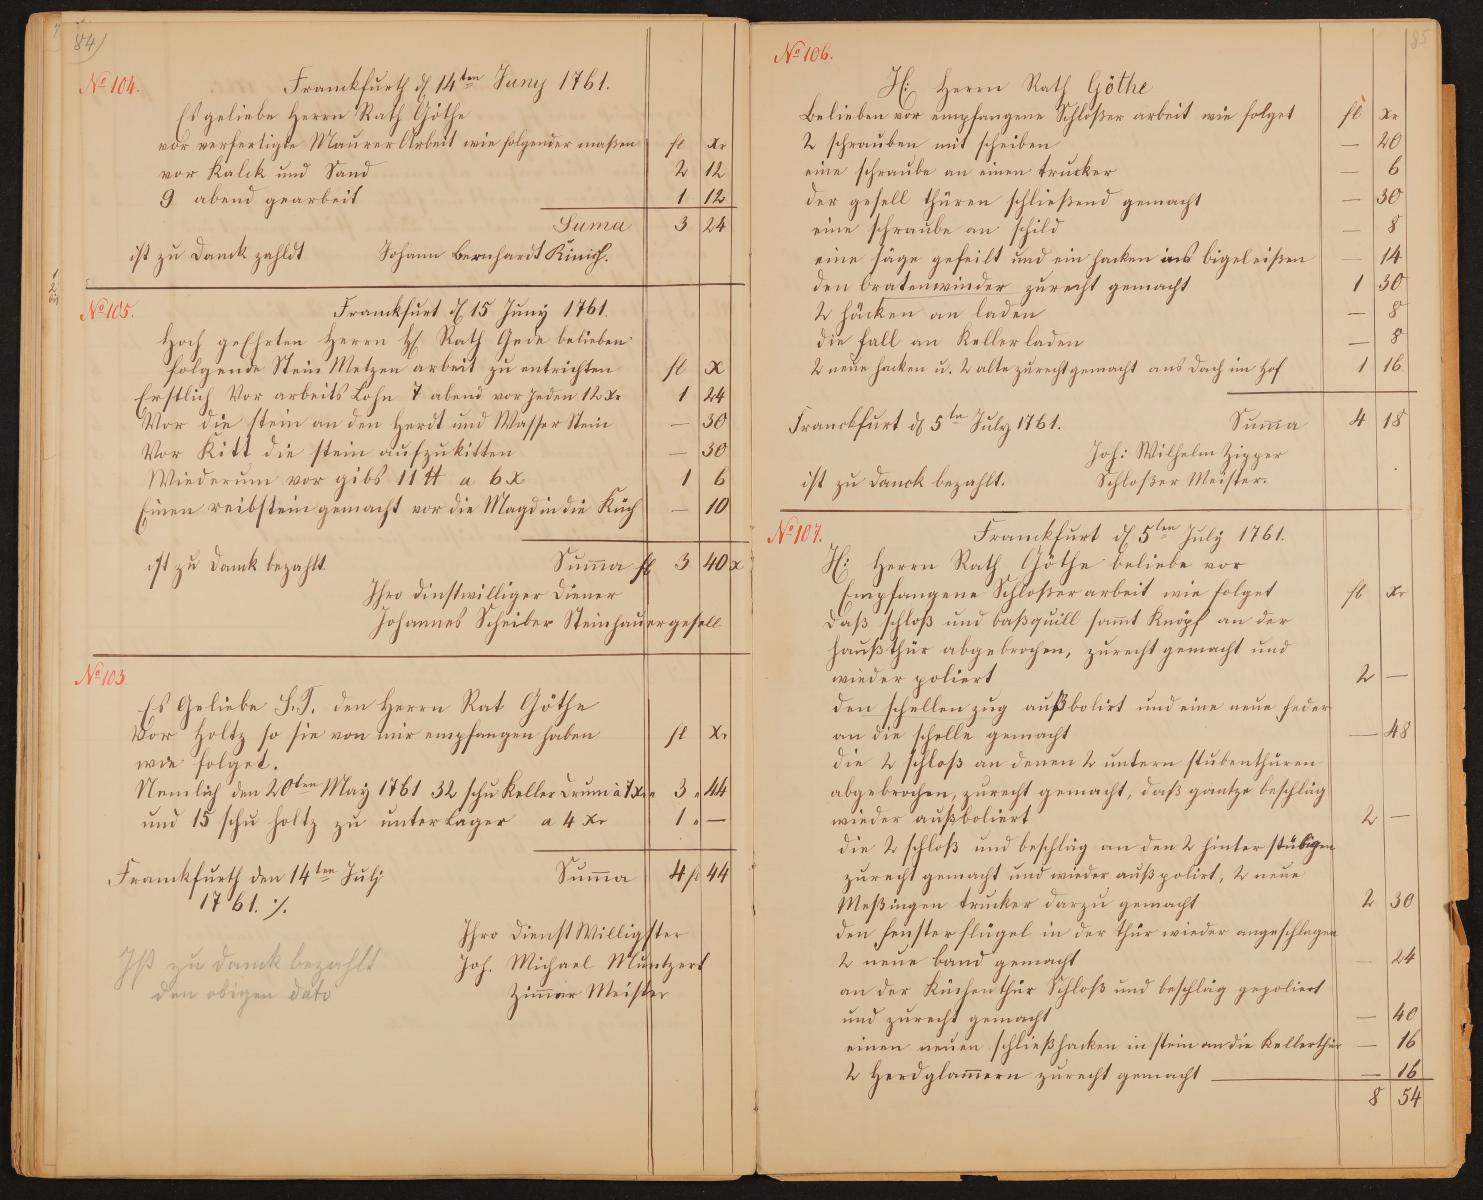 84)
No 104.
Franckfurth d 14ten Juny 1761.
Es geliebe Herrn Rath Göthe
vor verfertigte Maurer Arbeit wie folgender maßen fl xr
vor Kalck und Sand 2 12
9 abend gearbeit 1 12
Suma 3 24
ist zu Danck zahldt Johann Bernhardt
No 105.
Franckfurt d 15 Juny 1761.
Hoch geEhrten Herrn H Rath Gede belieben
folgende Stein Metzen arbeit zu entrichten fl x
Erstlich Vor arbeits Lohn 7 abend vor Jeden 12 xr 1 24
Vor die stein an den Herdt und Wasser Stein — 30
Vor Kitt die stein aufzukitten — 30
Wiederum vor gibs 11 tt a 6 x 1 6
Einen reibstein gemacht vor die Magd in die Küch — 10
ist zu Danck bezahlt. Summa fl 3 40 x
Ihro dinstwilliger Diener
Johannes Scheiber Steinhauergesell
No 103
Es Geliebe S.T. den Herrn Rat Göthe
Vor Holtz so sie von mir empfangen haben fl xr
wie folget.
Nemlich den 20ten May 1761 32 schu Keller Drum a 7 xr 3 44
und 15 schu holtz zu unter Lager a 4 xr 1 —
Franckfurth den 14ten Julj Summa 4 fl 44
1761. ./.
Ihro dienst Willigster
Joh. Michael Muntzert
Zimmer Meister
Ist zu danck bezahlt
den obigen dato
85
No 106.
H: Herrn Rath Göthe
Belieben vor empfangene Schloßer arbeit wie folget fl xr
2 schrauben mit scheiben — 20
eine schraube an einen trucker — 6
der gesell thüren schließend gemacht — 30
eine schraube an schild — 8
eine säge gefeilt und ein hacken ins bigeleißen — 14
den bratenwinder zurecht gemacht 1 30
2 häcken an laden — 8
die fall an Kellerladen — 8
2 neue hacken u. 2 alte zurecht gemacht ans Dach im Hof 1 16
Franckfurt d 5ten July 1761. Summa 4 18
Joh: Wilhelm Zipper
ist zu danck bezahlt. Schloßer Meister.
No 107.
Franckfurt d 5ten July 1761.
H: Herrn Rath Göthe beliebe vor
Empfangene Schloßer arbeit wie folget fl xr
Daß schloß und baßquill sammt Knöpf an der
haußthür abgebrochen, zurecht gemacht und
wieder poliert 2 —
den schellen zug außbolirt und eine neue feder
an die schelle gemacht — 48
die 2 schloß an denen 2 untern stubenthüren
abgebrochen, zurecht gemacht, daß gantze beschläg
wieder außboliert 2 —
die 2 schloß und beschläg an den 2 hinter stübigen
zurecht gemacht und wieder außpolirt, 2 neue
Meßingen trucker darzu gemacht 2 30
den fensterflügel in der thür wieder angeschlagen
2 neue band gemacht — 24
an der Küchenthür Schloß und beschläg gepoliert
und zurecht gemacht — 40
einen neuen schließhacken in stein an die Kellerthür — 16
2 Herdglammern zurecht gemacht — 16
8 54